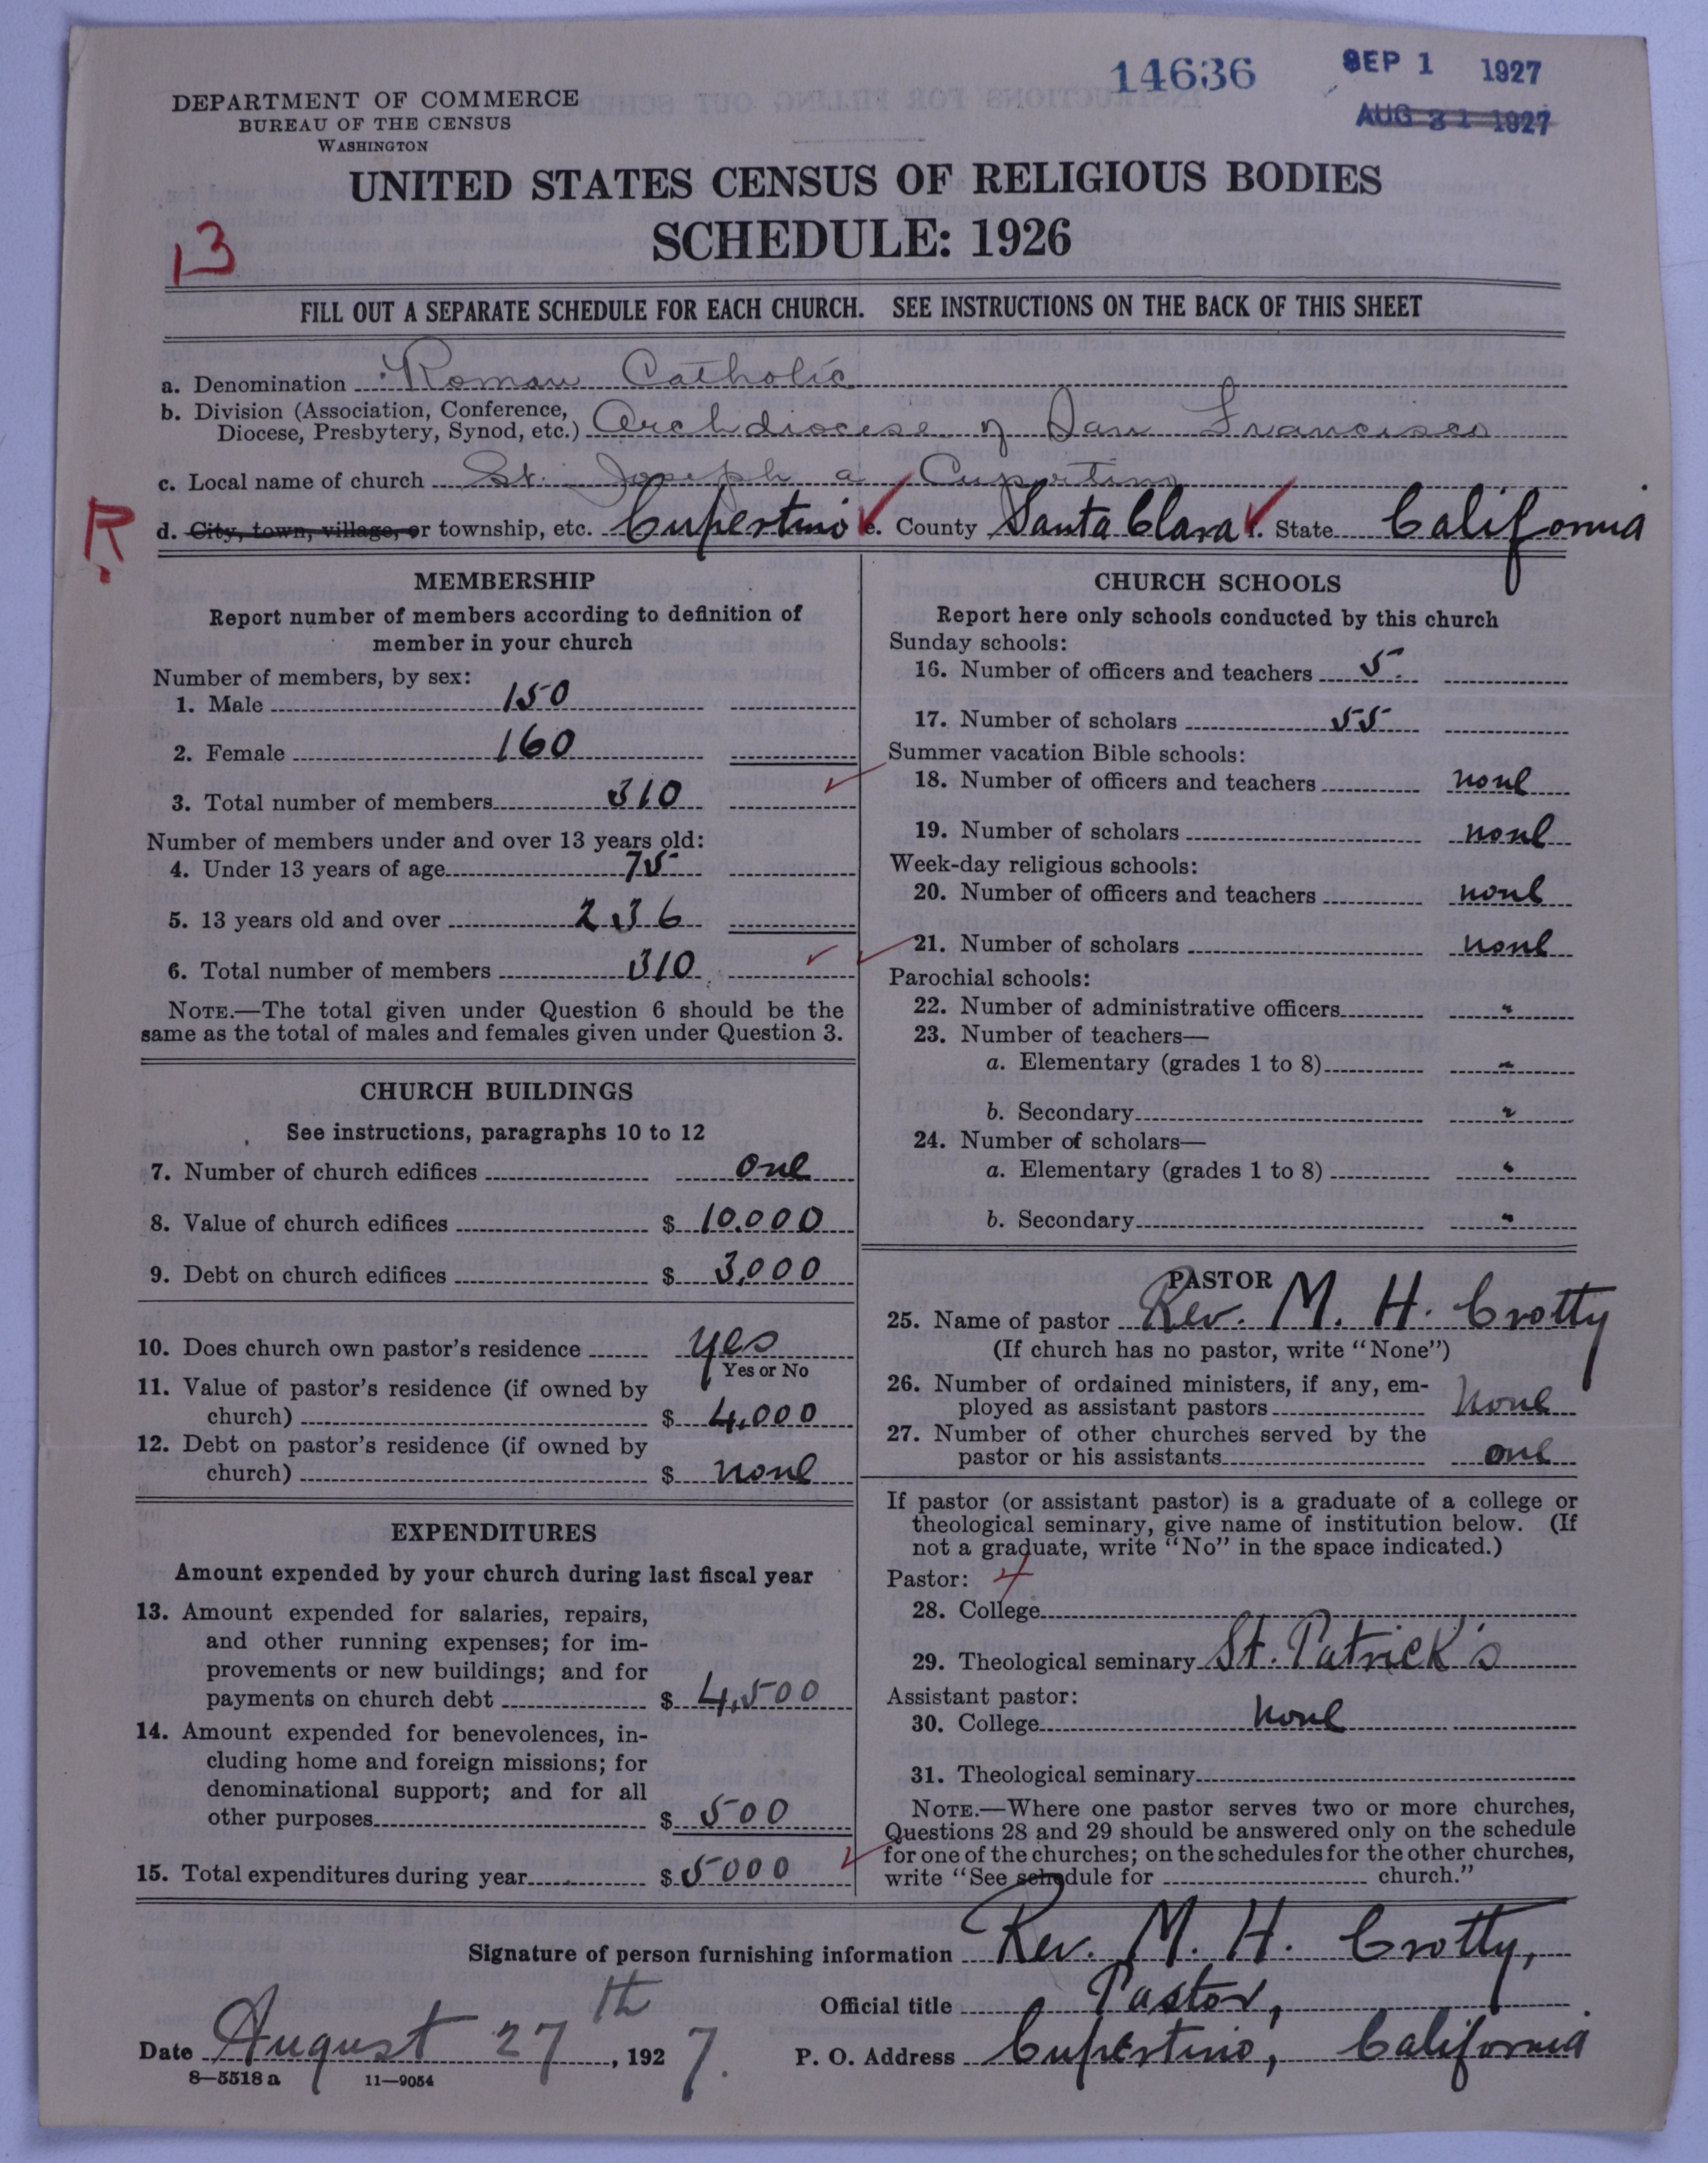 14636
SEP 1 1927
AUG 31 1927
DEPARTMENT OF COMMERCE
BUREAU OF THE CENSUS
WASHINGTON
UNITED STATES CENSUS OF RELIGIOUS BODIES
SCHEDULE: 1926
13
FILL OUT A SEPARATE SCHEDULE FOR EACH CHURCH. SEE INSTRUCTIONS ON THE BACK OF THIS SHEET
a. Denomination Roman Catholic
b. Division (Association, Conference,
Diocese, Presbytery, Synod, etc.) Archdiocese of San Francisco
c. Local name of church St. Joseph a Cupertino
R
d. City, town, village, or township, etc. Cupertino e. County Santa Clara f. State California
MEMBERSHIP
Report number of members according to definition of
member in your church
Number of members, by sex:
1. Male 150
2. Female 160
3. Total number of members 310
Number of members under and over 13 years old:
4. Under 13 years of age 75
5. 13 years old and over 236
6. Total number of members 310
NOTE.—The total given under Question 6 should be the
same as the total of males and females given under Question 3.
CHURCH BUILDINGS
See instructions, paragraphs 10 to 12
7. Number of church edifices one
8. Value of church edifices $ 10.000
9. Debt on church edifices $ 3,000
10. Does church own pastor's residence yes
Yes or No
11. Value of pastor's residence (if owned by
church) $ 4,000
12. Debt on pastor's residence (if owned by
church) $ none
EXPENDITURES
Amount expended by your church during last fiscal year
13. Amount expended for salaries, repairs,
and other running expenses; for im-
provements or new buildings; and for
payments on church debt $ 4,500
14. Amount expended for benevolences, in-
cluding home and foreign missions; for
denominational support; and for all
other purposes $ 500
15. Total expenditures during year $ 5000
CHURCH SCHOOLS
Report here only schools conducted by this church
Sunday schools:
16. Number of officers and teachers 5.
17. Number of scholars 55
Summer vacation Bible schools:
18. Number of officers and teachers none
19. Number of scholars none
Week-day religious schools:
20. Number of officers and teachers none
21. Number of scholars none
Parochial schools:
22. Number of administrative officers "
23. Number of teachers—
a. Elementary (grades 1 to 8) "
b. Secondary "
24. Number of scholars—
a. Elementary (grades 1 to 8) "
b. Secondary "
PASTOR
25. Name of pastor Rev. M. H. Crotty
(If church has no pastor, write "None")
26. Number of ordained ministers, if any, em-
ployed as assistant pastors None
27. Number of other churches served by the
pastor or his assistants one
If pastor (or assistant pastor) is a graduate of a college or
theological seminary, give name of institution below. (If
not a graduate, write "No" in the space indicated.)
Pastor: 4
28. College
29. Theological seminary St. Patrick's
Assistant pastor:
30. College None
31. Theological seminary
NOTE.—Where one pastor serves two or more churches,
Questions 28 and 29 should be answered only on the schedule
for one of the churches; on the schedules for the other churches,
write "See schedule for church."
Signature of person furnishing information Rev. M. H. Crotty,
Official title Pastor,
Date August 27th, 1927. P. O. Address Cupertino, California
8—5518 a 11—9054